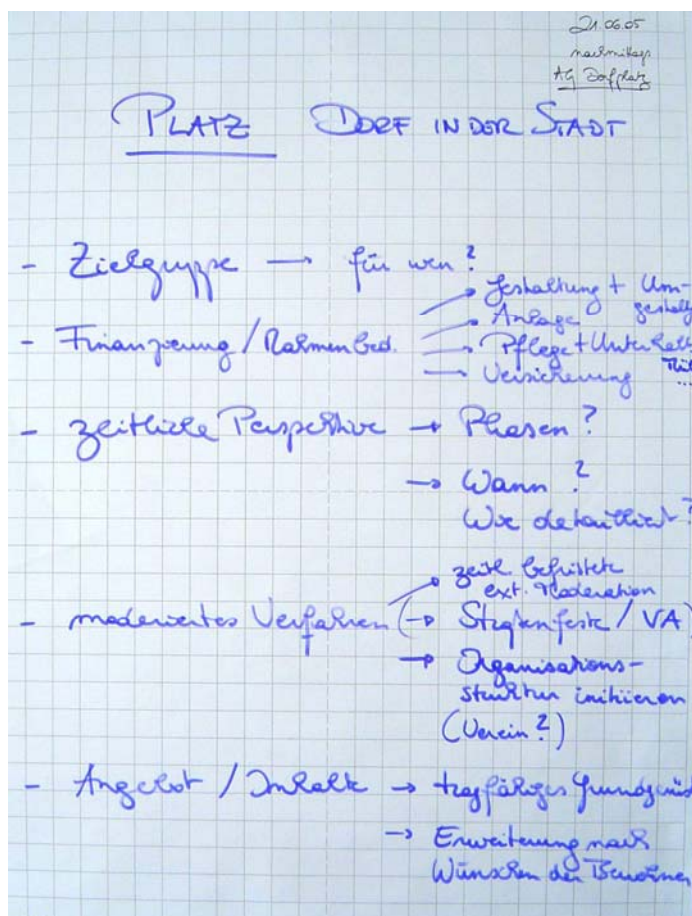 21.06.05
nachmittags
AG Dorfplatz
PLATZ DORF IN DER STADT
- Zielgruppe → für wen?
- Finanzierung / Rahmenbed. → Gestaltung + Um-
gestalt
→ Anlage
→ Pflege + Unterhalt
→ Versicherung
...
- zeitliche Perspektive → Phasen?
→ Wann?
Wie detailliert?
- moderiertes Verfahren → zeitl. befristete
ext. Moderation
(→ Straßenfeste / VA)
→ Organisations-
struktur initiieren
(Verein?)
- Angebot / Inhalte → tragfähiges Grundgerüst
→ Erweiterung nach
Wünschen der Bewohner